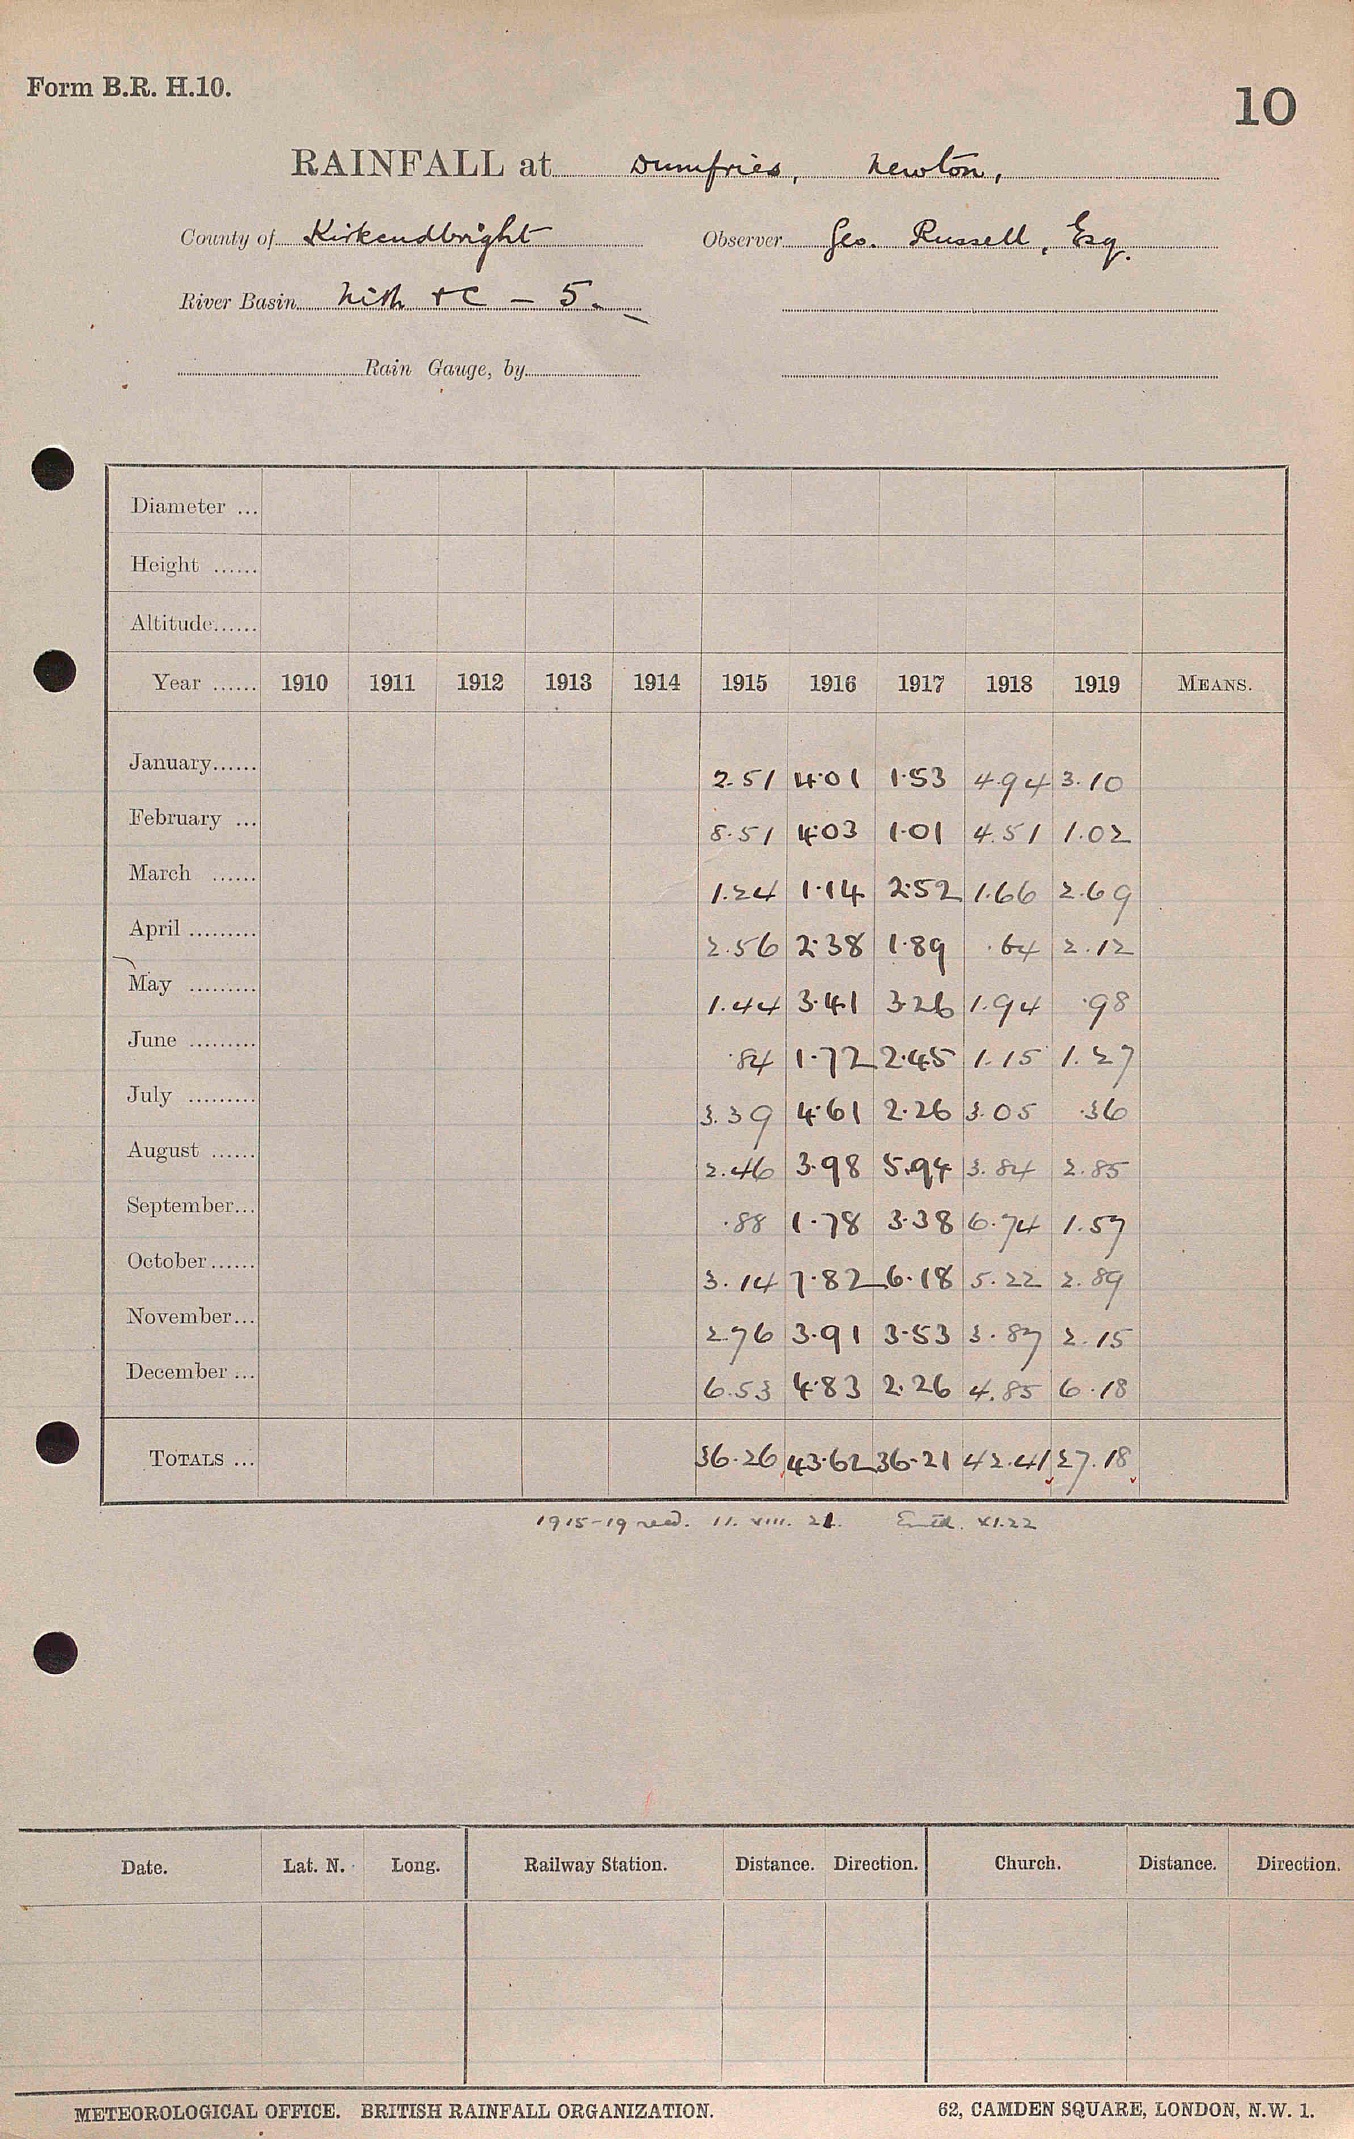 Form B.R. H.10.
10
RAINFALL at Dumfries, Newton,
County of Kirkcudbright Observer Geo. Russell, Esq.
River Basin Nith &c — 5.
Rain Gauge, by
Diameter ...
Height ......
Altitude......
Year ...... 1910 1911 1912 1913 1914 1915 1916 1917 1918 1919 MEANS.
January...... 2.51 4.01 1.53 4.94 3.10
February ... 8.51 4.03 1.01 4.51 1.02
March ...... 1.24 1.14 2.52 1.66 2.69
April ......... 2.56 2.38 1.89 .64 2.12
May ......... 1.44 3.41 3.26 1.94 .98
June ......... .84 1.72 2.45 1.15 1.27
July ......... 3.39 4.61 2.26 3.05 .36
August ...... 2.46 3.98 5.94 3.84 2.85
September... .88 1.78 3.38 6.74 1.57
October...... 3.14 7.82 6.18 5.22 2.89
November... 2.76 3.91 3.53 3.87 2.15
December ... 6.53 4.83 2.26 4.85 6.18
TOTALS ... 36.26 43.62 36.21 42.41 27.18
1915-19 recd. 11. VIII. 21. Entd. XI.22
Date. Lat. N. Long. Railway Station. Distance. Direction. Church. Distance. Direction.
METEOROLOGICAL OFFICE. BRITISH RAINFALL ORGANIZATION. 62, CAMDEN SQUARE, LONDON, N.W. 1.